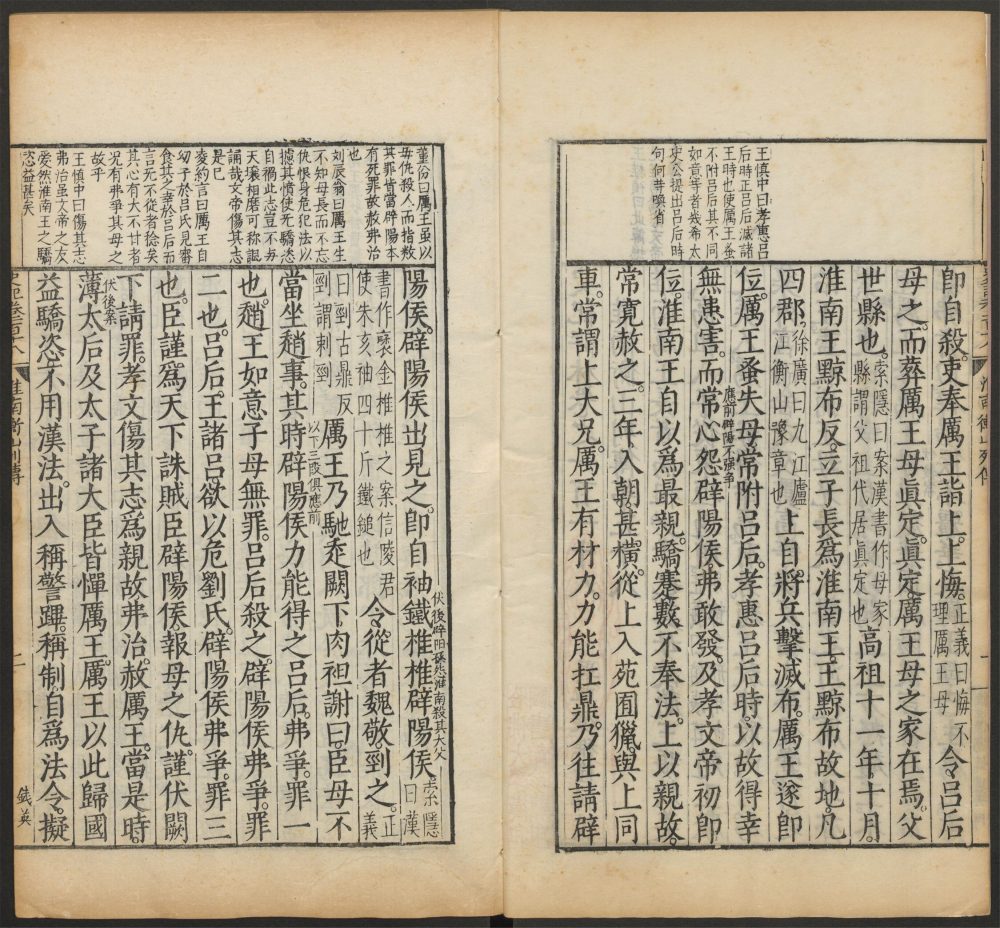 王慎中曰孝惠呂
后時正呂后滅諸
王時也使厲王蚤
不附呂后其不同
如意等者幾希太
史公提出呂后時
句何等喚省
即自殺。吏奉厲王詣上。上悔。正義曰悔不理厲王母令呂后
母之。而葬厲王母眞定。眞定厲王母之家在焉。父
世縣也。索隱曰案漢書作母家縣謂父祖代居眞定也高祖十一年十月。
淮南王黥布反。立子長爲淮南王王黥布故地。凡
四郡。徐廣曰九江廬江衡山豫章也上自將兵擊滅布。厲王遂即
位。厲王蚤失母常附呂后。孝惠呂后時以故得幸
應前辟陽不强爭
無患害。而常心怨辟陽侯弗敢發。及孝文帝初即
位。淮南王自以爲最親驕蹇數不奉法。上以親故。
常寬赦之。三年入朝甚橫。從上入苑囿獵。與上同
車。常謂上大兄。厲王有材力。力能扛鼎。乃往請辟
董份曰厲王雖以
母仇殺人而指數
其罪皆當辟陽本
有死罪故赦弗治
也
劉辰翁曰厲王生
不知母長而不忘
仇恨身危犯法以
攄其憤使無驕恣
自禍此志豈不與
天壤相磨可稱詛
誦哉文帝傷其志
是已
凌約言曰厲王自
幼子於呂氏見審
食其之幸於呂后而
言死不從者稔矣
其心有大不甘者
况有弗爭其母之
故乎
王慎中曰傷其志
弗治雖文帝之友
愛然淮南王之驕
恣益甚矣
陽侯。辟陽侯出見之。即自袖鐵椎椎辟陽侯索隱曰漢
伏後辟陽孫怨淮南殺其大父
書作褏金椎椎之案信陵君使朱亥袖四十斤鐵鎚也令從者魏敬。剄之。正義
曰剄古鼎反剄謂刺剄厲王乃馳走闕下。肉袒謝曰。臣母不
以下三段俱應前
當坐趙事。其時辟陽侯力能得之呂后。弗爭。罪一
也。趙王如意子母無罪。呂后殺之。辟陽侯弗爭。罪
二也。呂后王諸呂欲以危劉氏。辟陽侯弗爭。罪三
也。臣謹爲天下誅賊臣辟陽侯報母之仇。謹伏闕
下請罪。孝文傷其志爲親故弗治。赦厲王。當是時。
伏後案
薄太后及太子諸大臣皆憚厲王。厲王以此歸國
益驕恣不用漢法。出入稱警蹕。稱制。自爲法令。擬
淮南衡山列傳
二
錢英